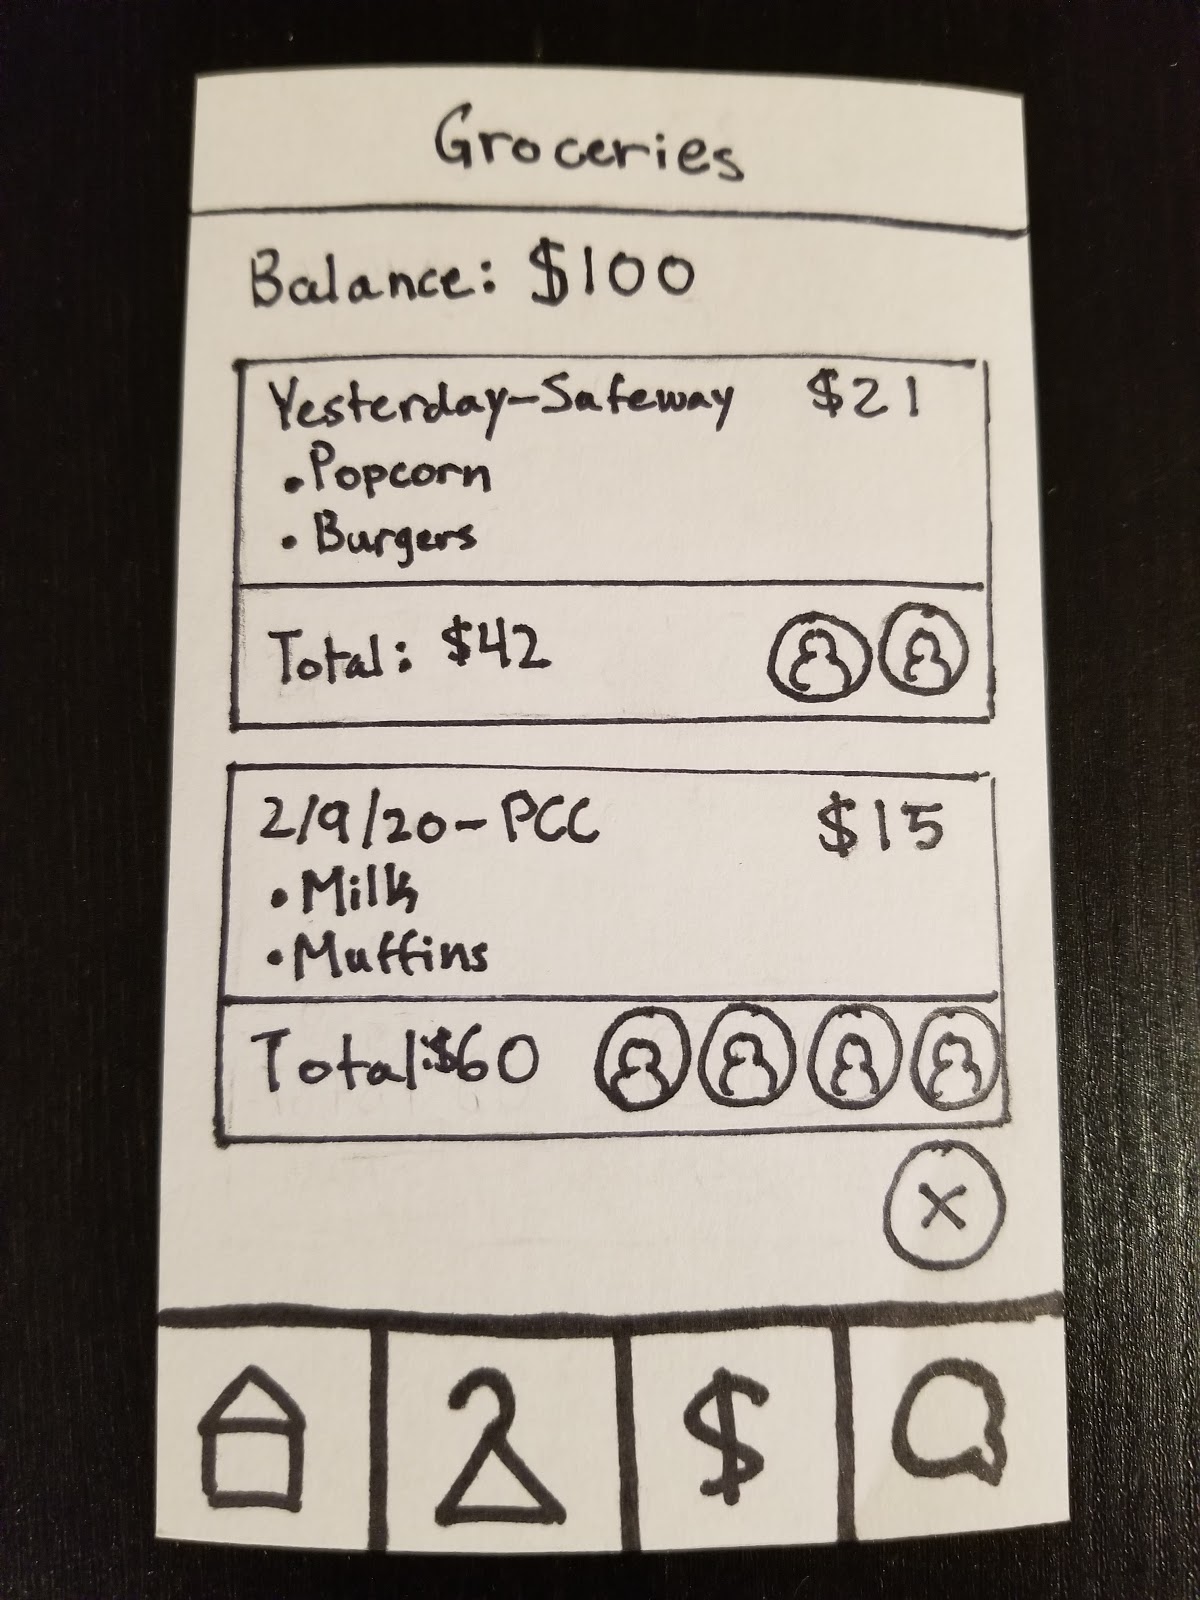 Groceries
Balance: $100
Yesterday-Safeway $21
• Popcorn
• Burgers
Total: $42
2/9/20-PCC $15
• Milk
• Muffins
Total:$60
X
$